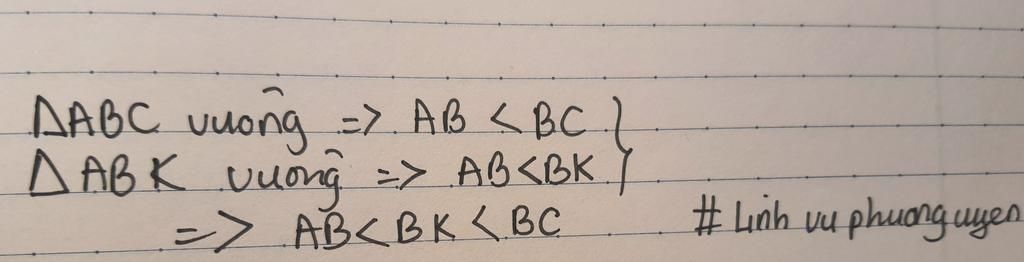 ΔABC vuông => AB < BC }
ΔABK vuông => AB<BK
=> AB<BK<BC # Linh vu phuong uyen